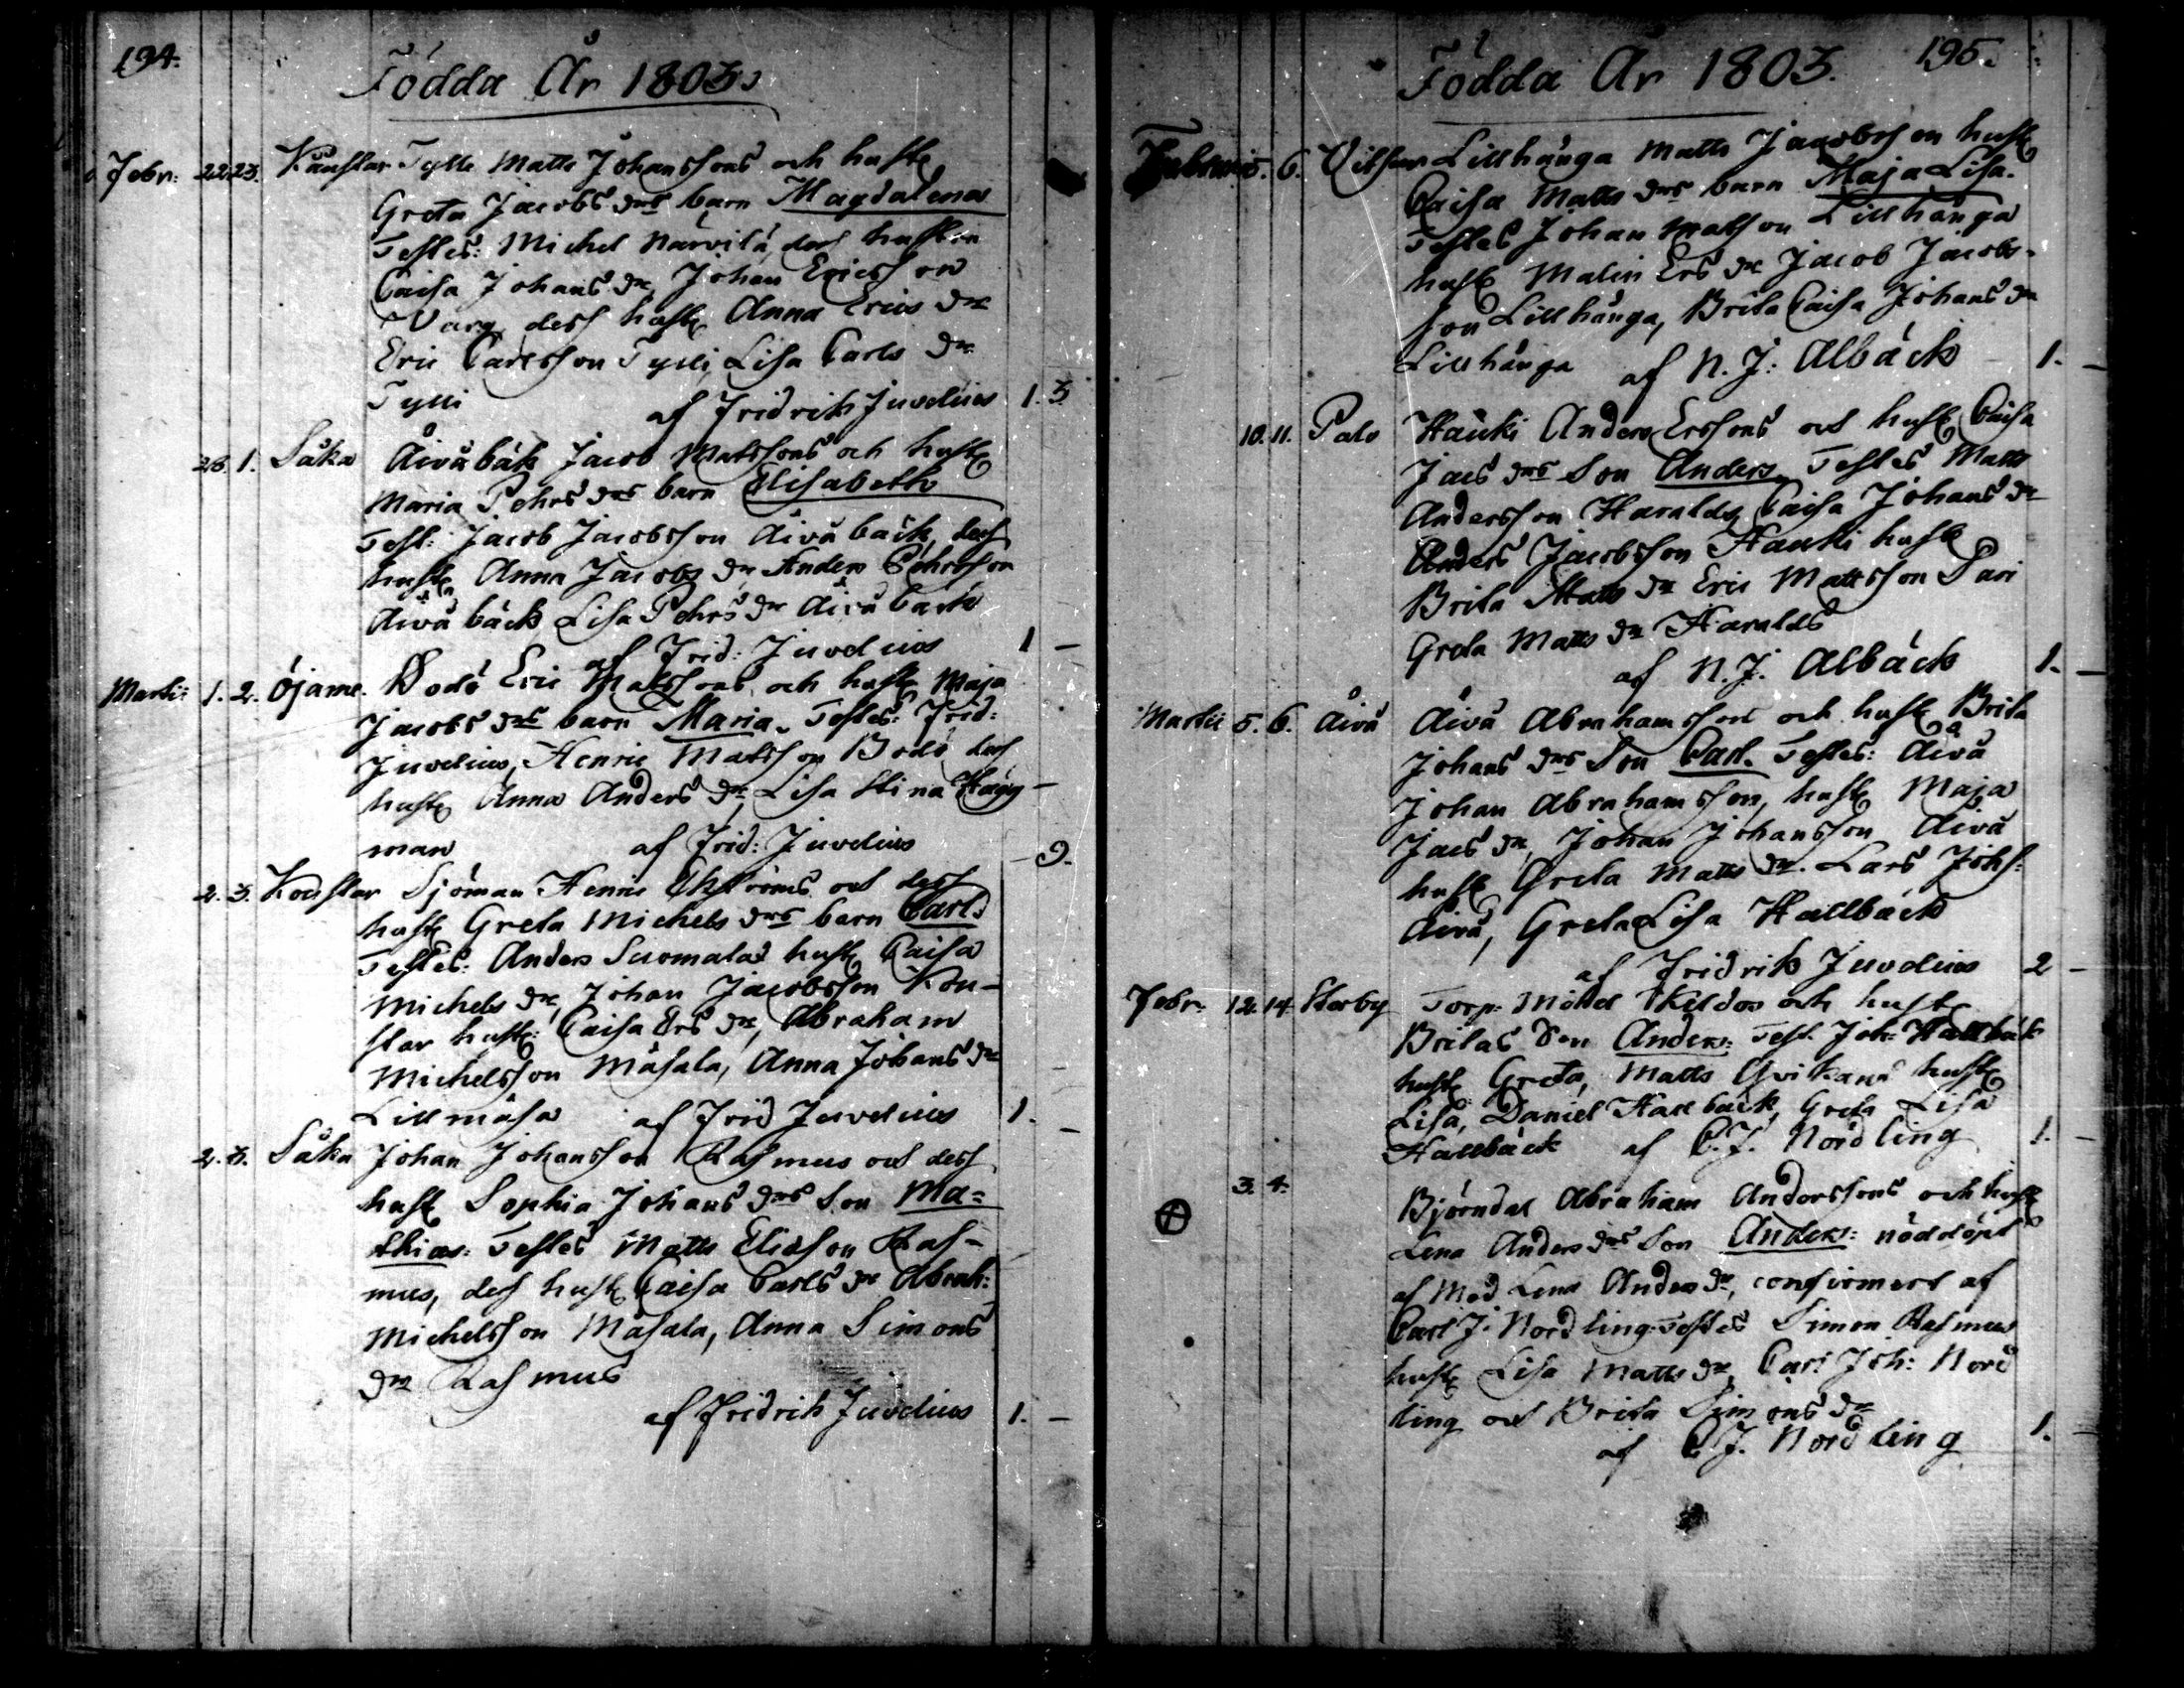 194.
Födda År 1803.
Febr: 22. 23. Kaustar Tylli Matts Johanssons och hust
Greta Jacobs drs barn Magdalena
Testes: Michel Närvilä, dess hustru
Caisa Johans dr, Johan Ericsson
Warg, dess hust Anna Erics dr
Eric Carlsson Tylli, Lisa Carls dr
Tylli af Fridrik Juvelius 1. 3.
28. 1. Såka Åivåbäck Jacob Matssons och hust
Maria Pehrs drs barn Elisabeth
Test: Jacob Jacobsson Åivåbäck, dess
hust Anna Jacobs dr Anders Pehrsson
Åivåbäck, Lisa Pehrs dr Åivåbäck
af Frid: Juvelius 1 –
Martii 1. 2. Öjame. Bodö Eric Matssons och hust Maja
Jacobs drs barn Maria. Testes: Frid:
Juvelius, Henric Matsson Bodö dess
hust Anna Anders dr, Lisa Stina Hägg-
man af Frid: Juvelius – 9.
2. 3. Koustar Sjöman Henric Ekströms och dess
hust Greta Michels drs barn Carl.
Testes: Anders Suomalas hust Caisa
Michels dr, Johan Jacobsson Kou-
star hust: Caisa Ers dr, Abraham
Michelsson Måsala, Anna Johans dr
Lillmåsa af Frid Juvelius 1. –
2. 3. Såka Johan Johansson Rasmus och dess
hust Sophia Johans drs Son Ma=
thias: Testes Matts Elidson Ras-
mus, dess hust Caisa Carls dr Abrah:
Michelsson Måsala, Anna Simons
dr Rasmus
af Fridrik Juvelius 1. –
Födda År 1803. 195.
Februarii 5. 6. Vitsar Lillhånga Matts Jacobsson hust
Caisa Matts drs barn Maja Lisa.
Testes Johan Matson Lillhånga
hust Malin Ers dr Jacob Jacobs-
son Lillhånga, Brita Caisa Johans dr
Lillhånga af N. J. Albäck 1. –
10. 11. Palo Hauki Anders Erssons och hust Caisa
Jacs drs Son Anders. Testes Matts
Andersson Haralds, Caisa Johans dr
Anders Jacobsson Hauki hust
Brita Matts dr Eric Mattsson Pari
Greta Matts dr Haralds
af N. J. Albäck 1. –
Martii 5. 6. Åivå Åivå Abrahamsson och hust Brita
Johans drs Son Carl. Testes: Åivå
Johan Abrahamsson, hust Maja
Jacs dr, Johan Johansson Åivå
hust Greta Matts dr. Lars Johs:
Åivå, Greta Lisa Hallbäck
af Fridrik Juvelius 2 –
Febr. 12. 14. Storby Torp: Michel Skildos och hust
Britas Son Anders: Test. Joh: Hallbäck
hust Greta, Matts hust
Lisa, Daniel Hallbäck, Greta Lisa
Hallbäck af C. J. Nordling 1. –
3. 4. Björndal Abraham Anderssons och hust
Lena Anders drs Son Anders: nöddöpt
af Mod Lena Anders dr, confirmert af
Carl J. Nordling. Testes Simon Rasmus
hust Lisa Matts dr, Carl Joh: Nord
ling och Brita Simons dr
af C. J. Nordling 1. –